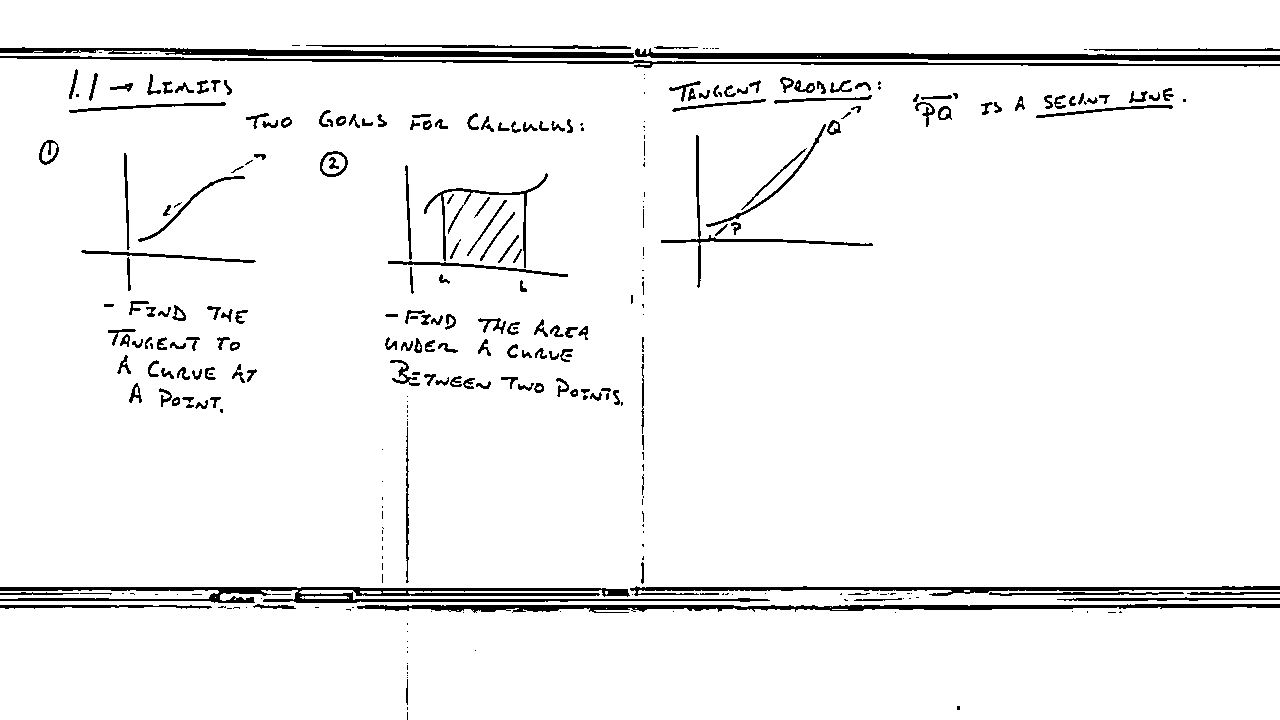 1.1 → LIMITS
TWO GOALS FOR CALCULUS:
1
2
a b
- FIND THE
TANGENT TO
A CURVE AT
A POINT.
- FIND THE AREA
UNDER A CURVE
BETWEEN TWO POINTS.
TANGENT PROBLEM:
Q
P
PQ IS A SECANT LINE.